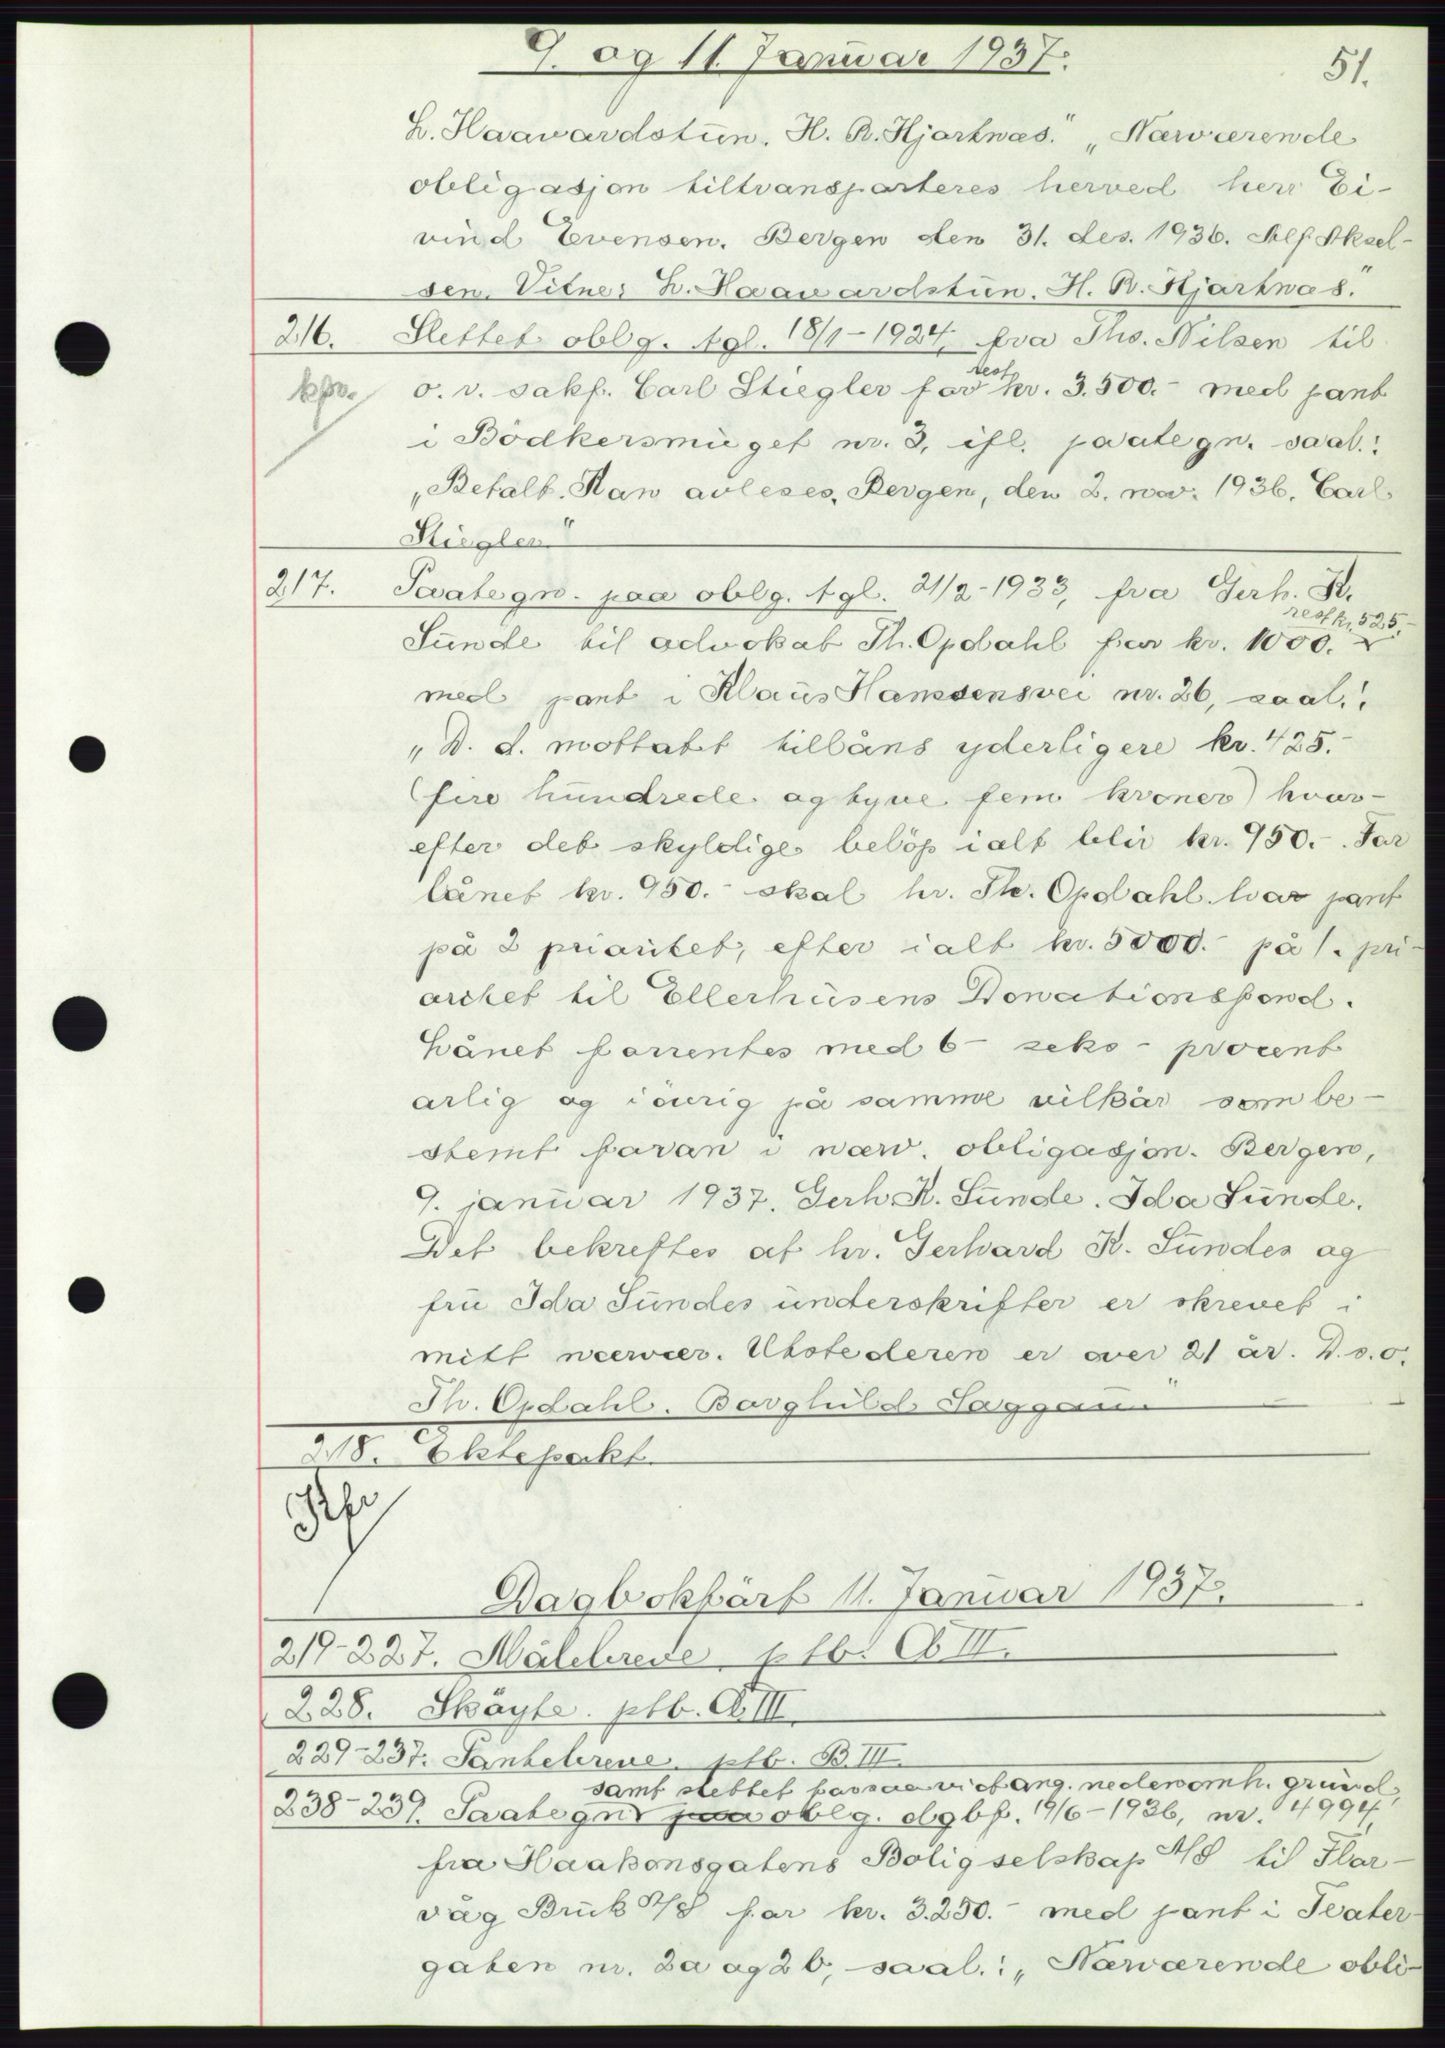 9. og 11. Januar 1937.
51.
L. Haavardstun. H. B. Hjartnæs." „Nærværende
obligasjon tiltransporteres herved herr Ei-
vind Evensen. Bergen den 31. des. 1936. Alf Aksel-
sen. Vitne: L. Haavardstun. H. B. Hjartnæs."
216. Slettet oblg. tgl. 18/1-1924, fra Ths. Nilsen til
o. r. sakf. Carl Stiegler for rest kr. 3.500.- med pant
i Bödkersmuget nr. 3, ifl. paategn. saal.:
„Betalt. Kan avleses, Bergen, den 2. nov. 1936. Carl
Stiegler"
217. Paategn. paa oblg. tgl. 21/2-1933, fra Gerh. K.
rest kr. 525.-
Sunde til advokat Th. Opdahl for kr. 1000.-
med pant i Klaus Hanssensvei nr. 26, saal.:
„D. d. mottatt tillåns yderligere kr. 425.-
(fire hundrede og tyve fem kroner) hvor-
efter det skyldige belöp ialt blir kr. 950.-. For
lånet kr. 950.- skal hr. Th. Opdahl har pant
på 2 prioritet, efter ialt kr. 5000.- på 1. pri-
oritet til Ellerhusens Donationsfond.
Lånet forrentes med 6 - seks - procent
årlig og iövrig på samme vilkår som be-
stemt foran i nærv. obligasjon. Bergen,
9. januar 1937. Gerh. K. Sunde. Ida Sunde.
Det bekreftes at hr. Gerhard K. Sundes og
fru Ida Sundes underskrifter er skrevet i
mitt nærvær. Utstederen er over 21 år. D.s.o.
Th. Opdahl. Borghild Saggau"
218. Ektepakt.
Dagbokfört 11. Januar 1937.
219-227. Målebreve. ptb. A III.
228. Sköyte. ptb. A III.
229-237. Pantebreve. ptb. B. III.
238-239. Paategn. paa oblg. dgbf. 19/6-1936, nr. 4994,
fra Haakonsgatens Boligselskap A/S til Flor-
våg Bruk A/S for kr. 3.250.- med pant i Teater-
gaten nr. 2a og 2b, saal.: „Nærværende obli-